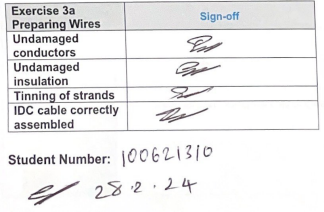 Exercise 3a
Preparing Wires
Sign-off
Undamaged
conductors
Undamaged
insulation
Tinning of strands
IDC cable correctly
assembled
Student Number: 100621310
28.2.24